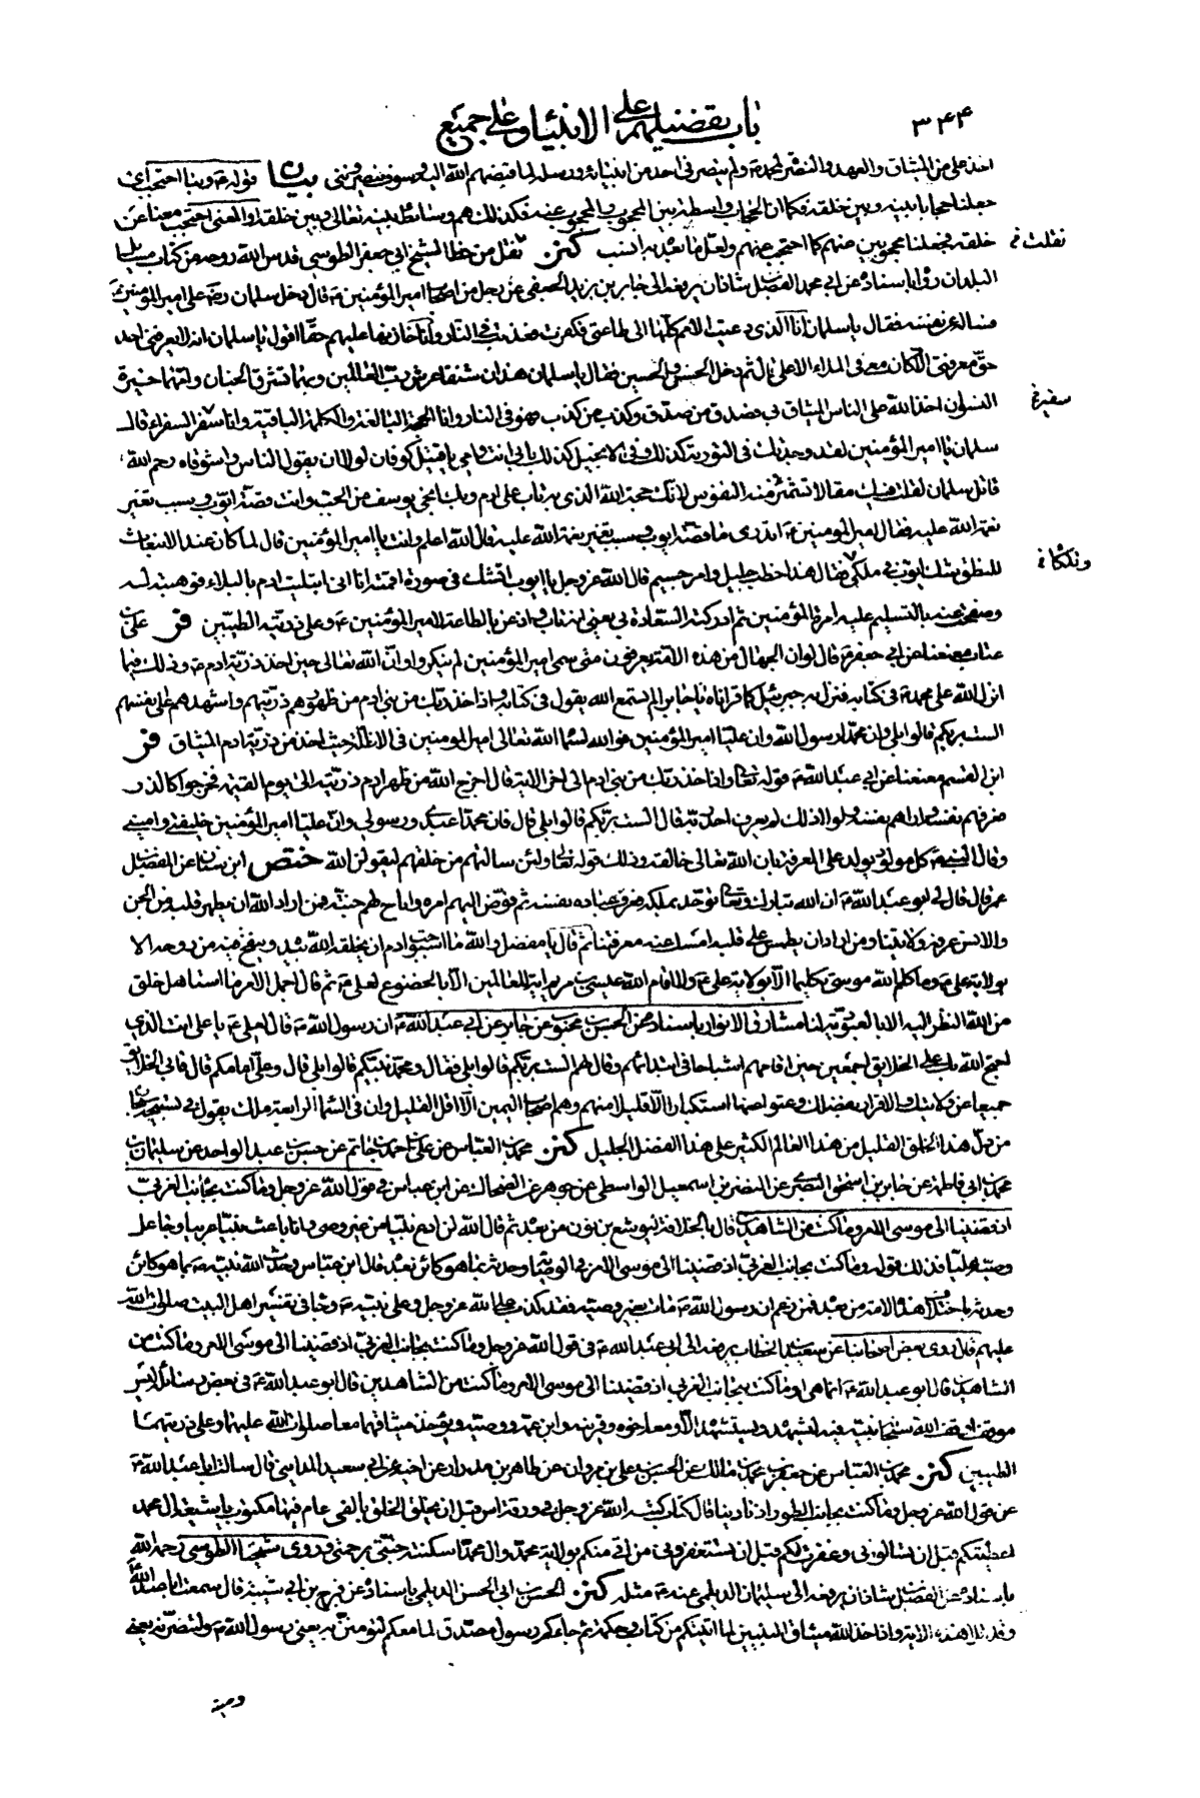 ٣٤٤
باب تفضيلهم على الانبياء وعلى جميع
اخذ على من الميثاق والعهد والنصر لمحمد ص ولم ينصرنى احد من انبيائه ورسله لما قبضهم الله اليه وسوف ينصروننى بيان قوله ع وبنا احتجب اى
جعلنا حجابا بينه وبين خلقه فكما ان الحجاب واسطة بين المحجوب والمحجوب عنه فكذلك هم وسائط بينه تعالى وبين خلقه او المعنى احتجب معنا عن
خلقه فجعلنا محجوبين عنهم كما احتجب عنهم ولعل ما بعده به انسب كنز نقل من خط الشيخ ابى جعفر الطوسى قدس الله روحه من كتاب مسائل
نقلت خ
البلدان رواه باسناده عن ابى محمد الفضل بن شاذان يرفعه الى جابر بن يزيد الجعفى عن رجل من اصحاب امير المؤمنين ع قال دخل سلمان رض على امير المؤمنين ع
فساله عن نفسه فقال يا سلمان انا الذى دعيت الامم كلها الى طاعتى فكفرت فعذبت فى النار وانا خازنها عليهم حقا اقول يا سلمان انه لا يعرفنى احد
حق معرفتى الا كان معى فى الملاء الاعلى قال ثم دخل الحسن والحسين فقال يا سلمان هذان شنفا عرش رب العالمين وبهما تشرق الجنان وامهما خيرة
النسوان اخذ الله على الناس الميثاق بى فصدق من صدق وكذب من كذب فهو فى النار وانا الحجة البالغة والكلمة الباقية وانا سفر السفراء قال
سفير خ
سلمان يا امير المؤمنين لقد وجدتك فى التورية كذلك وفى الانجيل كذلك بابى انت وامى يا قتيل كوفان لولا ان يقول الناس واشوقاه رحم الله
قاتل سلمان لقلت فيك مقالا تشمئز منه النفوس لانك حجة الله الذى به تاب على ادم وبك انجى يوسف من الجب وانت قصة ايوب وسبب تغير
نعمة الله عليه فقال امير المؤمنين ع اتدرى ما قصة ايوب وسبب تغير نعمة الله عليه قال الله اعلم وانت يا امير المؤمنين قال لما كان عند الانبعاث
للنطق شك ايوب فى ملكى فقال هذا خطب جليل وامر جسيم قال الله عز وجل يا ايوب اتشك فى صورة اقمته انا انى ابتليت ادم بالبلاء فوهبته له
وتلكأ خ
وصفحت عنه بالتسليم عليه بامرة المؤمنين ثم ادركته السعادة بى يعنى انه تاب واذعن بالطاعة لامير المؤمنين ع وعلى ذريته الطيبين فر على بن
عتاب معنعنا عن ابى جعفر ع قال لو ان الجهال من هذه الامة يعرفون متى سمى امير المؤمنين لم ينكروا وان الله تعالى حين اخذ ذرية ادم ع وذلك فيما
انزل الله على محمد ص فى كتابه فنزل به جبرئيل كما قرأناه يا جابر الم تسمع الله يقول فى كتابه واذ اخذ ربك من بنى ادم من ظهورهم ذريتهم واشهدهم على انفسهم
الست بربكم قالوا بلى وان محمدا رسول الله وان عليا امير المؤمنين فو الله لسماه الله تعالى امير المؤمنين فى الاظلة حيث اخذ من ذرية ادم الميثاق فر
ابن القسم معنعنا عن ابى عبد الله ع قوله تعالى واذ اخذ ربك من بنى ادم الى اخر الاية قال اخرج الله من ظهر ادم ذريته الى يوم القيمة فخرجوا كالذر
فعرفهم نفسه واراهم نفسه ولولا ذلك لم يعرف احد ربه قال الست بربكم قالوا بلى قال فان محمدا عبدى ورسولى وان عليا امير المؤمنين خليفتى وامينى
وقال النبى ص كل مولود يولد على المعرفة بان الله تعالى خالقه وذلك قوله تعالى ولئن سالتهم من خلقهم ليقولن الله ختص ابن سنان عن المفضل بن
عمر قال قال لى ابو عبد الله ع ان الله تبارك وتعالى توحد بملكه فعرف عباده نفسه ثم فوض اليهم امره واباح لهم جنته فمن اراد الله ان يطهر قلبه من الجن
والانس عرفه ولايتنا ومن اراد ان يطمس على قلبه امسك عنه معرفتنا ثم قال يا مفضل والله ما استوجب ادم ان يخلقه الله بيده وينفخ فيه من روحه الا
بولاية على ع وما كلم الله موسى تكليما الا بولاية على ع ولا اقام الله عيسى بن مريم اية للعالمين الا بالخضوع لعلى ع ثم قال اجمل الامر ما استاهل خلق
من الله النظر اليه الا بالعبودية لنا مشارق الانوار باسناده عن الحسن بن محبوب عن جابر عن ابى عبد الله ع ان رسول الله ص قال لعلى ع يا على انت الذى
احتج الله بك على الخلايق اجمعين حين اقامهم اشباحا فى ابتدائهم وقال لهم الست بربكم قالوا بلى فقال ومحمد نبيكم قالوا بلى قال وعلى امامكم قال فابى الخلايق
جميعا عن ولايتك والاقرار بفضلك وعتوا عنها استكبارا الا قليلا منهم وهم اصحاب اليمين الا اقل القليل وان فى السماء الرابعة ملك يقول فى تسبيحه سبحان
من دل هذا الخلق القليل من هذا العالم الكثير على هذا الفضل الجليل كنز محمد بن العباس عن على بن احمد بن حاتم عن حسن بن عبد الواحد عن سليمان بن
محمد بن ابى فاطمة عن جابر بن اسحق البصرى عن النضر بن اسمعيل الواسطى عن جوهر عن الضحاك عن ابن عباس فى قول الله عز وجل وما كنت بجانب الغربى
اذ قضينا الى موسى الامر وما كنت من الشاهدين قال بالخلافة ليوشع بن نون من بعده ثم قال الله لن ادع نبيا من غير وصى وانا باعث نبيا عربيا وجاعل
وصيه عليا فذلك قوله وما كنت بجانب الغربى اذ قضينا الى موسى الامر فى الوصاية وحدثه بما هو كائن بعده قال ابن عباس وحدث الله نبيه ص بما هو كائن
وحدثه باختلاف هذه الامة من بعده فمن زعم ان رسول الله ص مات بغير وصية فقد كذب على الله عز وجل وعلى نبيه ص وجاء فى تفسير اهل البيت صلوات الله
عليهم قال روى بعض اصحابنا عن سعيد بن الخطاب يرفعه الى ابى عبد الله ع فى قول الله عز وجل وما كنت بجانب الغربى اذ قضينا الى موسى الامر وما كنت من
الشاهدين قال ابو عبد الله ع انما هى او ما كنت بجانب الغربى اذ قضينا الى موسى الامر وما كنت من الشاهدين قال ابو عبد الله ع فى بعض رسائله ليس
موقف اوقف الله سبحانه نبيه فيه ليشهده ويستشهده الا ومعه اخوه وقرينه وابن عمه ووصيه ويؤخذ ميثاقهما معا صلوات الله عليهما وعلى ذريتهما
الطيبين كنز محمد بن العباس عن جعفر بن محمد بن مالك عن الحسن بن على بن مروان عن طاهر بن مدرار عن اخيه عن ابى سعيد المداينى قال سالت ابا عبد الله ع
عن قول الله عز وجل وما كنت بجانب الطور اذ نادينا قال كتاب كتبه الله عز وجل فى ورقة اس قبل ان يخلق الخلق بالفى عام فيها مكتوب يا شيعة ال محمد
اعطيتكم قبل ان تسالونى وغفرت لكم قبل ان تستغفرونى من اتى منكم بولاية محمد وال محمد اسكنته جنتى برحمتى وروى شيخنا الطوسى رحمه الله
باسناده عن الفضل بن شاذان يرفعه الى سليمان الديلمى عنه ع مثله كنز الحسن بن ابى الحسن الديلمى باسناده عن فرج بن ابى شيبة قال سمعت ابا عبد الله ع
وقد تلا هذه الاية واذ اخذ الله ميثاق النبيين لما اتيتكم من كتاب وحكمة ثم جاءكم رسول مصدق لما معكم لتؤمنن به يعنى رسول الله ص ولتنصرنه يعنى
وصيه